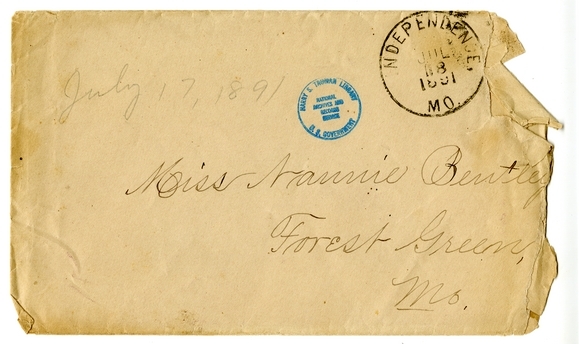 INDEPENDENCE,
JUL
8
1891
MO.
July 7, 1891
HARRY S. TRUMAN LIBRARY
NATIONAL
ARCHIVES AND
RECORDS
SERVICE
U. S. GOVERNMENT
Miss Nannie Bentley
Forest Green,
Mo.